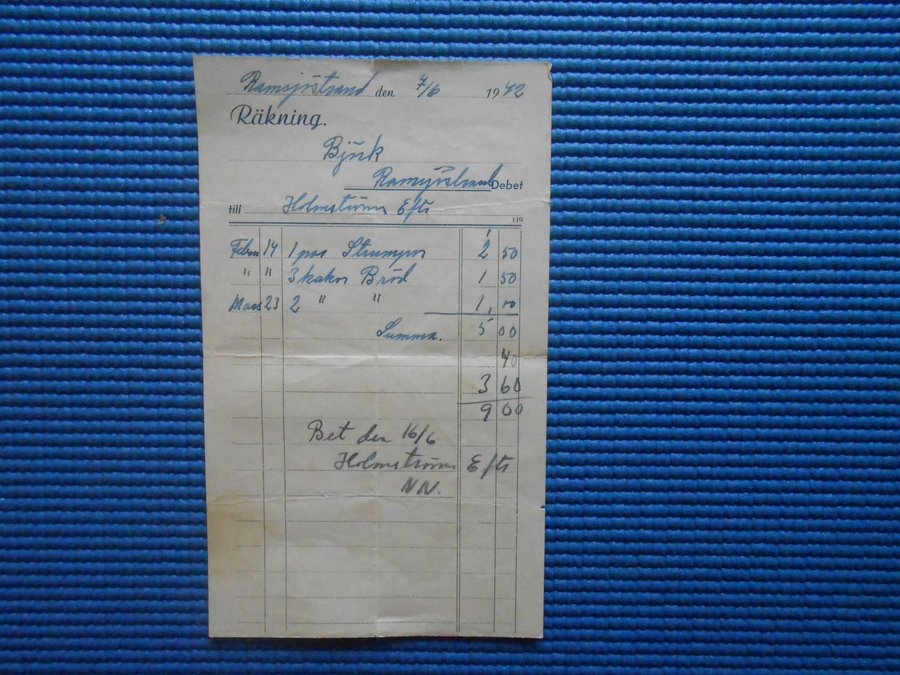 Ramsjöstrand den 7/6 1942
Räkning.
Björk
Ramsjöstrand Debet
till Holmströms Efts
110
Febru 14 1 par Strumpor 2 50
" " 3 kakor Bröd 1 50
Mars 23 2 " " 1,00
Summa. 5 00
40
3 60
9 00
Bet den 16/6
Holmströms Efts
NN.